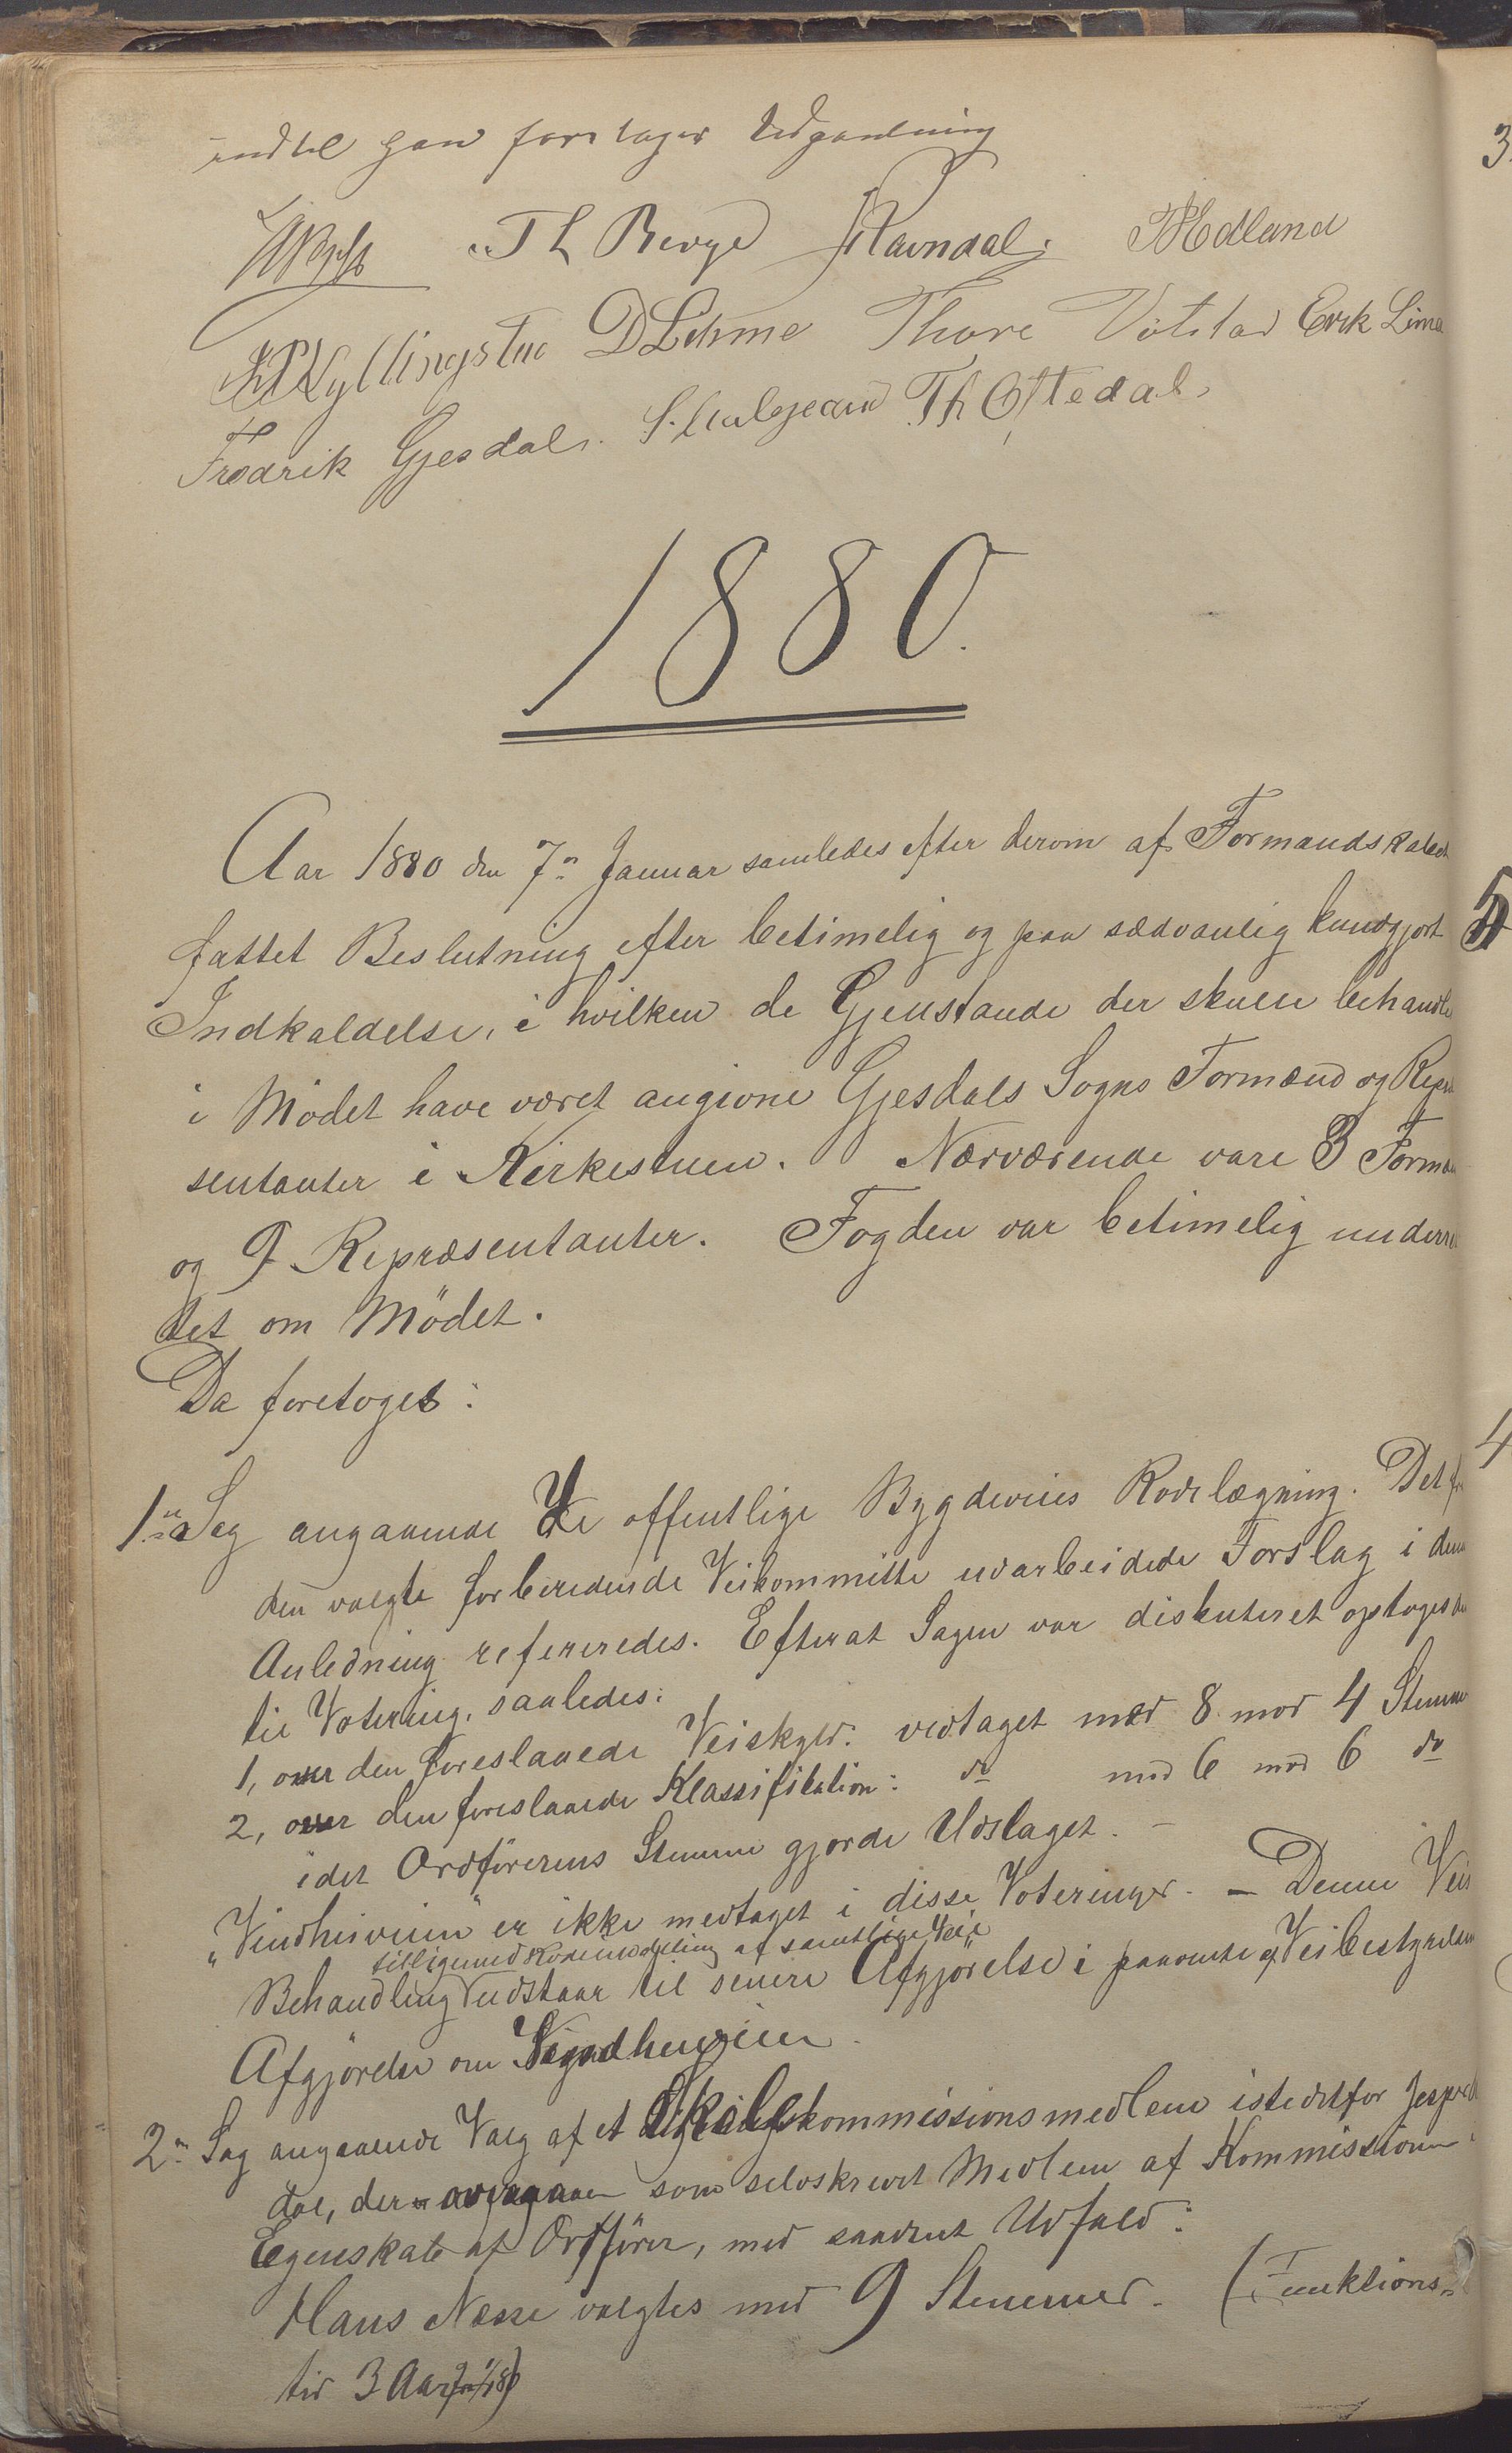 indtil han foretager Udgantning
Th Berge J Ravndal. Medland
Kyllingstad D Lehme Thore Votstad Erik Lima
Fredrik Gjesdal. S. Ualgeard Th Oftedal.
1880.
Aar 1880 den 7n Januar samledes efter derom af Formandskabet
fattet Beslutning efter betimelig og paa sædvanlig kundgjort
Indkaldelse, i hvilken de Gjenstande der skulle behandle
i Mödet have været angivne Gjesdals Sogns Formænd og Repræ
sentanter i Kirkestuen. Nærværende vare 3 Formæ
og 9 Repræsentanter. Fogden var betimelig underret
tet om Mödet.
Da foretoges:
1n Sag angaaende De offentlige Bygdeveies Rodelægning. Det
den valgte forberedende Veikommitte udarbeidede Forslag i denne
Anledning refereredes. Efterat Sagen var diskuteret optoges den
til Votering, saaledes:
1, over den foreslaaede Veiskyld: vedtaget med 8 mod 4 Stemme
2, over den foreslaaede Klassifikation: do med 6 mod 6 do
idet Ordförerens Stemme gjorde Udslaget. –
"Vindheiveien" er ikke medtaget i disse Voteringer. – Denne Veis
tilligemed Rodeinddeling af samtlige Veie
Behandling udstaar til senere Afgjörelse i paavente af Veibestyrelsens
Afgjörelse om Vindheiveien.
2n Sag angaaende Valg af et Skolekommissionsmedlem istedetfor Jesper
dal, der som selvskrevet Medlem af Kommissionen i
Egenskab af Ordförer, med saadant Udfald:
Hans Næsse valgtes med 9 Stemmer. (Funktions-
tid 3 Aar
3
5
4